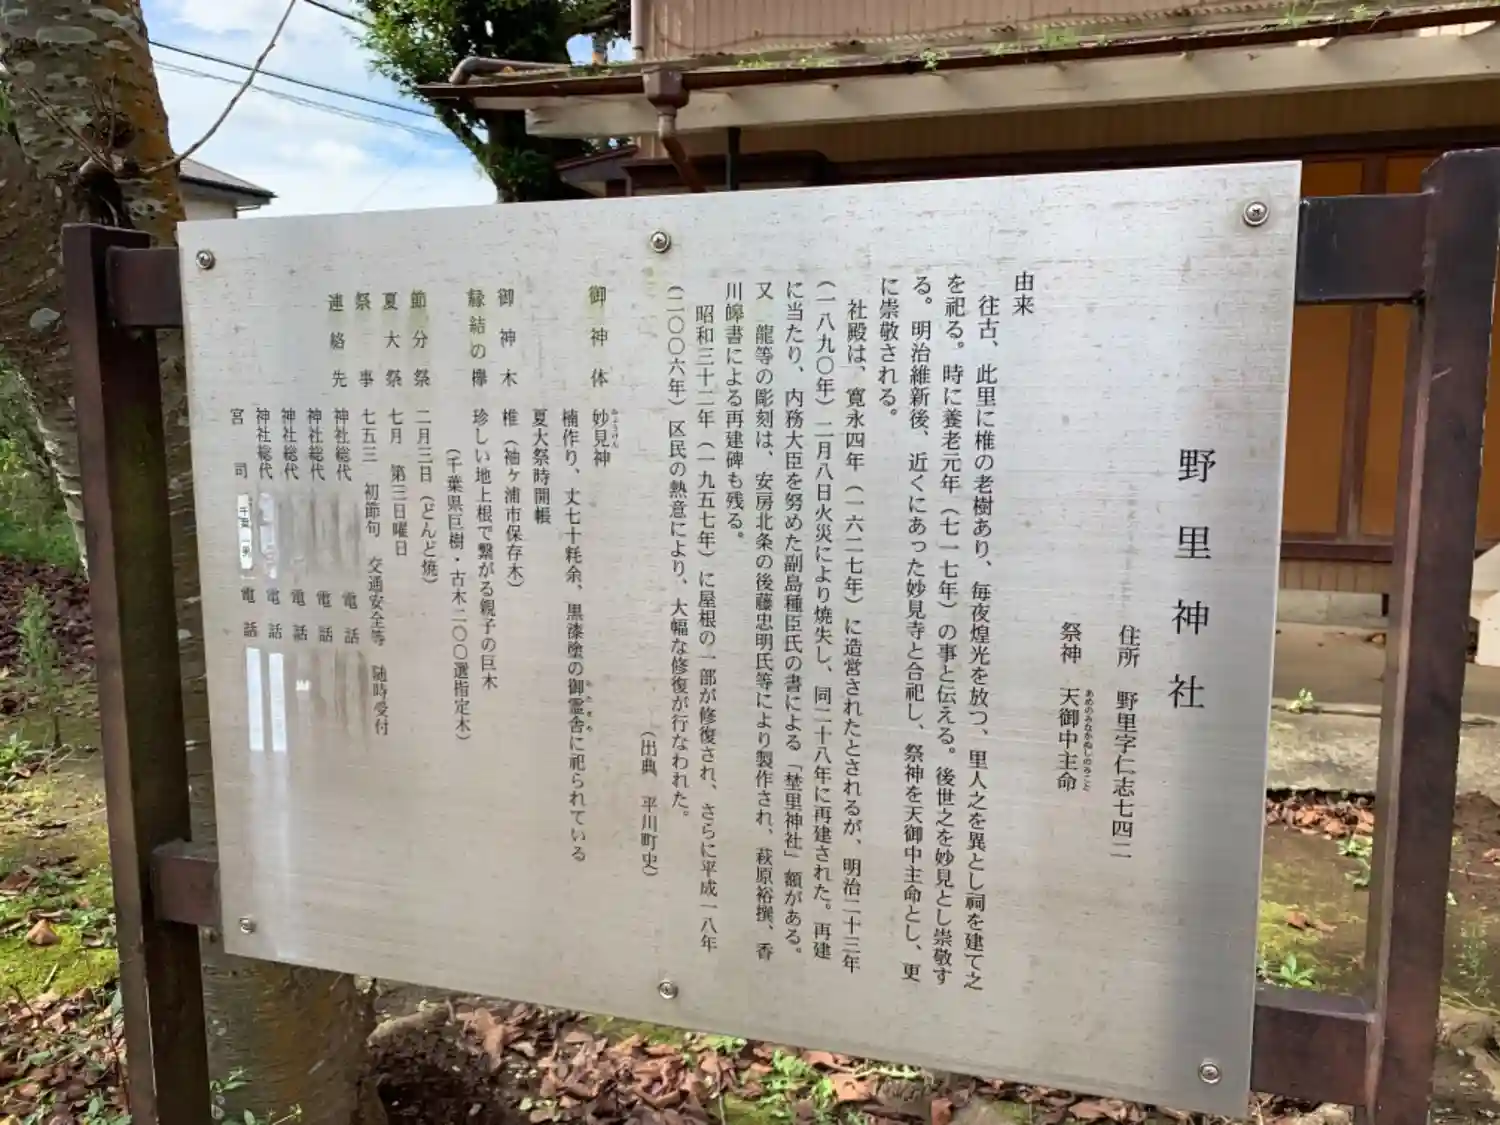 野里神社
住所 野里字仁志七四二
祭神 天御中主命
あめのみなかぬしのみこと
由来
往古、此里に椎の老樹あり、毎夜煌光を放つ、里人之を異とし祠を建て之
を祀る。時に養老元年（七一七年）の事と伝える。後世之を妙見とし崇敬す
る。明治維新後、近くにあった妙見寺と合祀し、祭神を天御中主命とし、更
に崇敬される。
社殿は、寛永四年（一六二七年）に造営されたとされるが、明治二十三年
（一八九〇年）二月八日火災により焼失し、同二十八年に再建された。再建
に当たり、内務大臣を努めた副島種臣氏の書による「埜里神社」額がある。
又 龍等の彫刻は、安房北条の後藤忠明氏等により製作され、萩原裕撰、香
川皞書による再建碑も残る。
昭和三十二年（一九五七年）に屋根の一部が修復され、さらに平成一八年
（二〇〇六年）区民の熱意により、大幅な修復が行なわれた。
（出典 平川町史）
御神体 妙見神
みょうけん
楠作り、丈七十粍余、黒漆塗の御霊舎に祀られている
みたまや
夏大祭時開帳
御神木 椎（袖ヶ浦市保存木）
縁結の欅 珍しい地上根で繋がる親子の巨木
（千葉県巨樹・古木二〇〇選指定木）
節分祭 二月三日（どんど焼）
夏大祭 七月 第三日曜日
祭事 七五三 初節句 交通安全等 随時受付
連絡先 神社総代 電話
神社総代 電話
神社総代 電話
神社総代 電話
宮司 電話